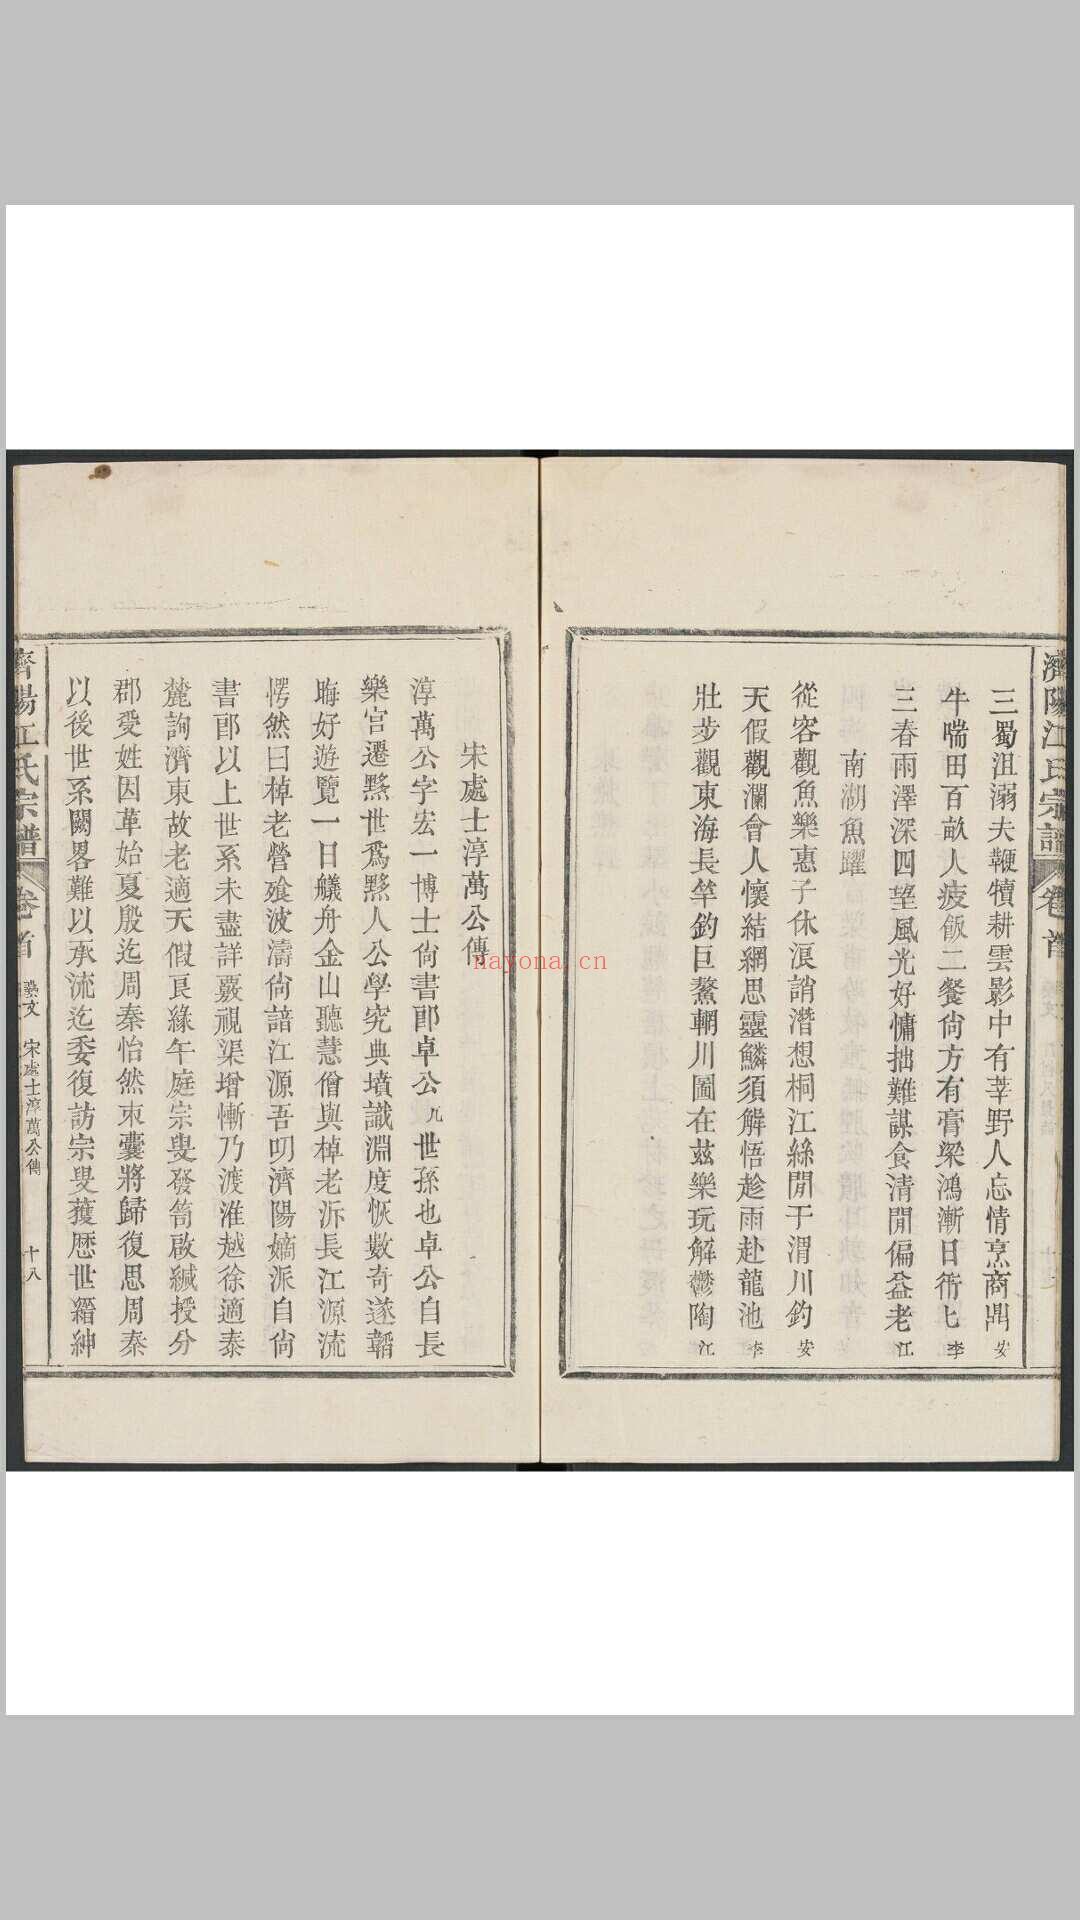 濟陽江氏宗譜 卷首
三蜀沮溺夫鞭犢耕雲影中有莘野人忘情烹商鼎 安
牛喘田百畝人疲飯二餐尙方有膏梁鴻漸日衎匕 李
三春雨澤深四望風光好慵拙難謀食清閒偏益老 江
南湖魚躍
從容觀魚樂惠子休浪誚潛想桐江絲閒于渭川釣 安
天假觀瀾會人懷結網思靈鱗須解悟趁雨赴龍池 李
壯步觀東海長竿釣巨鰲輞川圖在茲樂玩解鬱陶 江
宋處士淳萬公傳
淳萬公字宏一博士尙書郎卓公九世孫也卓公自長
樂宮遷黟世爲黟人公學究典墳識淵度恢數奇遂韜
晦好遊覽一日艤舟金山聽慧僧與棹老泝長江源流
愕然曰棹老營飧波濤尙諳江源吾叨濟陽嫡派自尙
書郎以上世系未盡詳覈視渠增慚乃渡淮越徐適泰
麓詢濟東故老適天假良緣午庭宗叟發笥啟緘授分
郡受姓因革始夏殷迄周秦怡然束囊將歸復思周秦
以後世系闕畧難以承流迄委復訪宗叟獲歷世縉紳
濟陽江氏宗譜 卷首 藝文 宋處士淳萬公傳 十八
nayona.cn